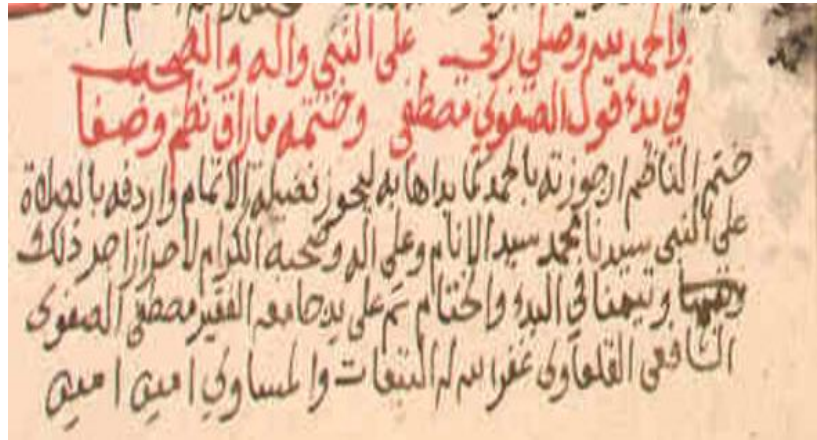 والحمد لله وصلى ربي على النبي وآله والصحب
في بدء قول الصفوي مصطفى وختمه ما راق نظم وصفا
ختم الناظم ارجوزته بالحمد كما بداها به ليحوز فضيلة الاتمام واردفه بالصلاة
على النبي سيدنا محمد سيد الانام وعلى اله وصحبه الكرام لاحراز اجر ذلك
وتيمنا في البدء والختام تم على يد جامعه الفقير مصطفى الصفوى
الشافعى القلعاوى غفر الله له التبعات والمساوي امين امين